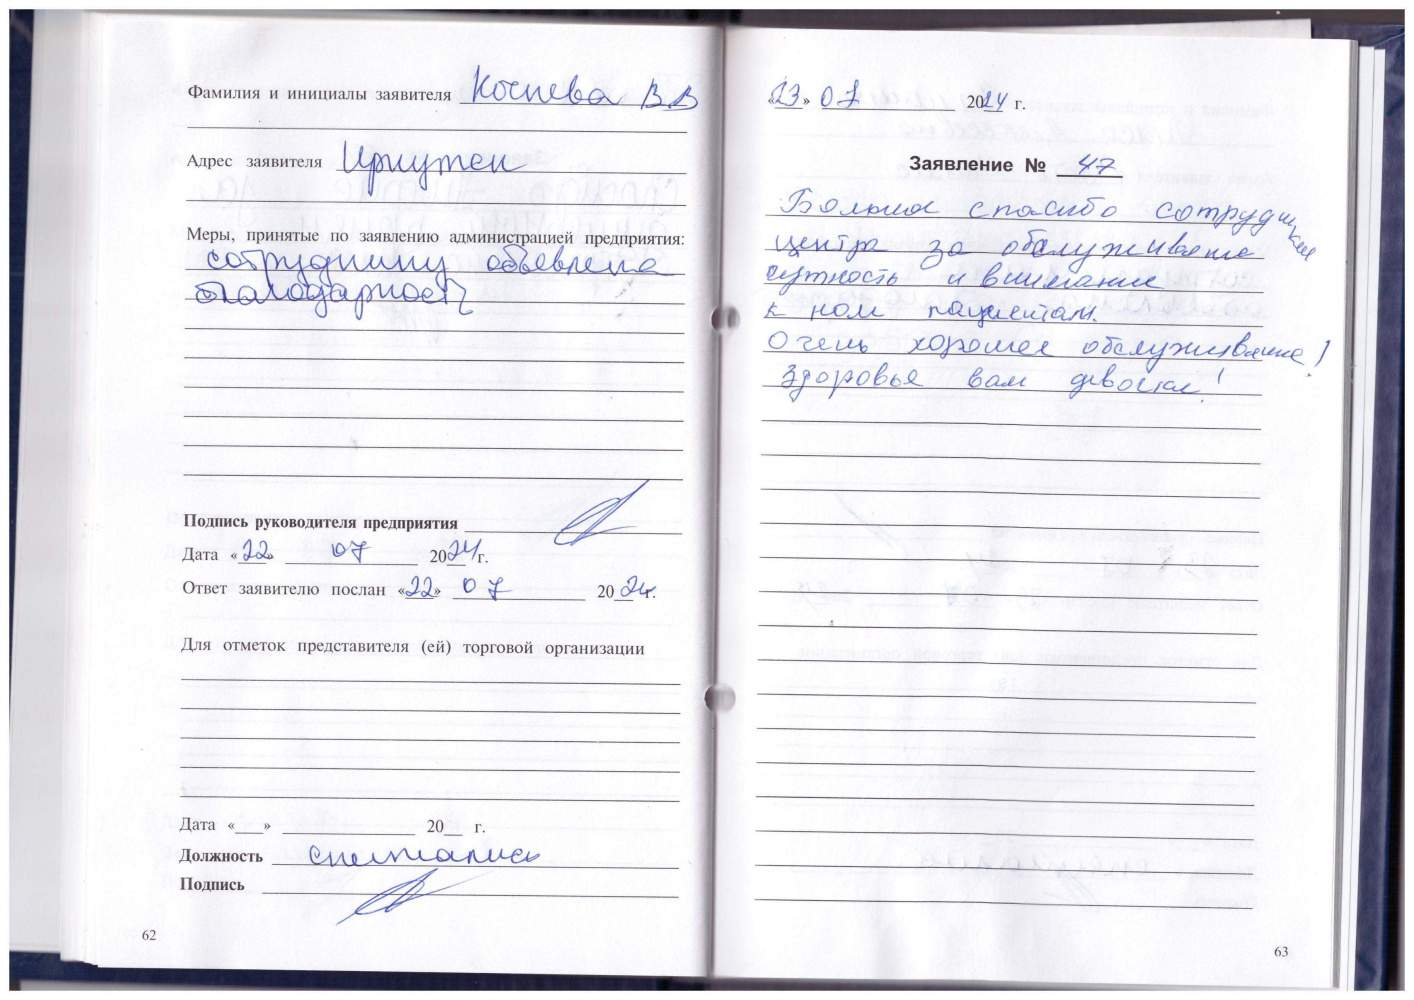 Фамилия и инициалы заявителя Кочнева В.В
Адрес заявителя Иркутск
Меры, принятые по заявлению администрацией предприятия:
сотруднику объевлена
благодарность
Подпись руководителя предприятия
Дата «22» 07 2024 г.
Ответ заявителю послан «22» 07 2024 г.
Для отметок представителя (ей) торговой организации
Дата «__» ____ 20__ г.
Должность специалист
Подпись
62
«23» 07 2024 г.
Заявление № 47
Большое спасибо сотрудникам
центра за обслуживание
чуткость и внимание
к нам пациентам.
Очень хорошее обслуживание!
Здоровья вам девочки!
63